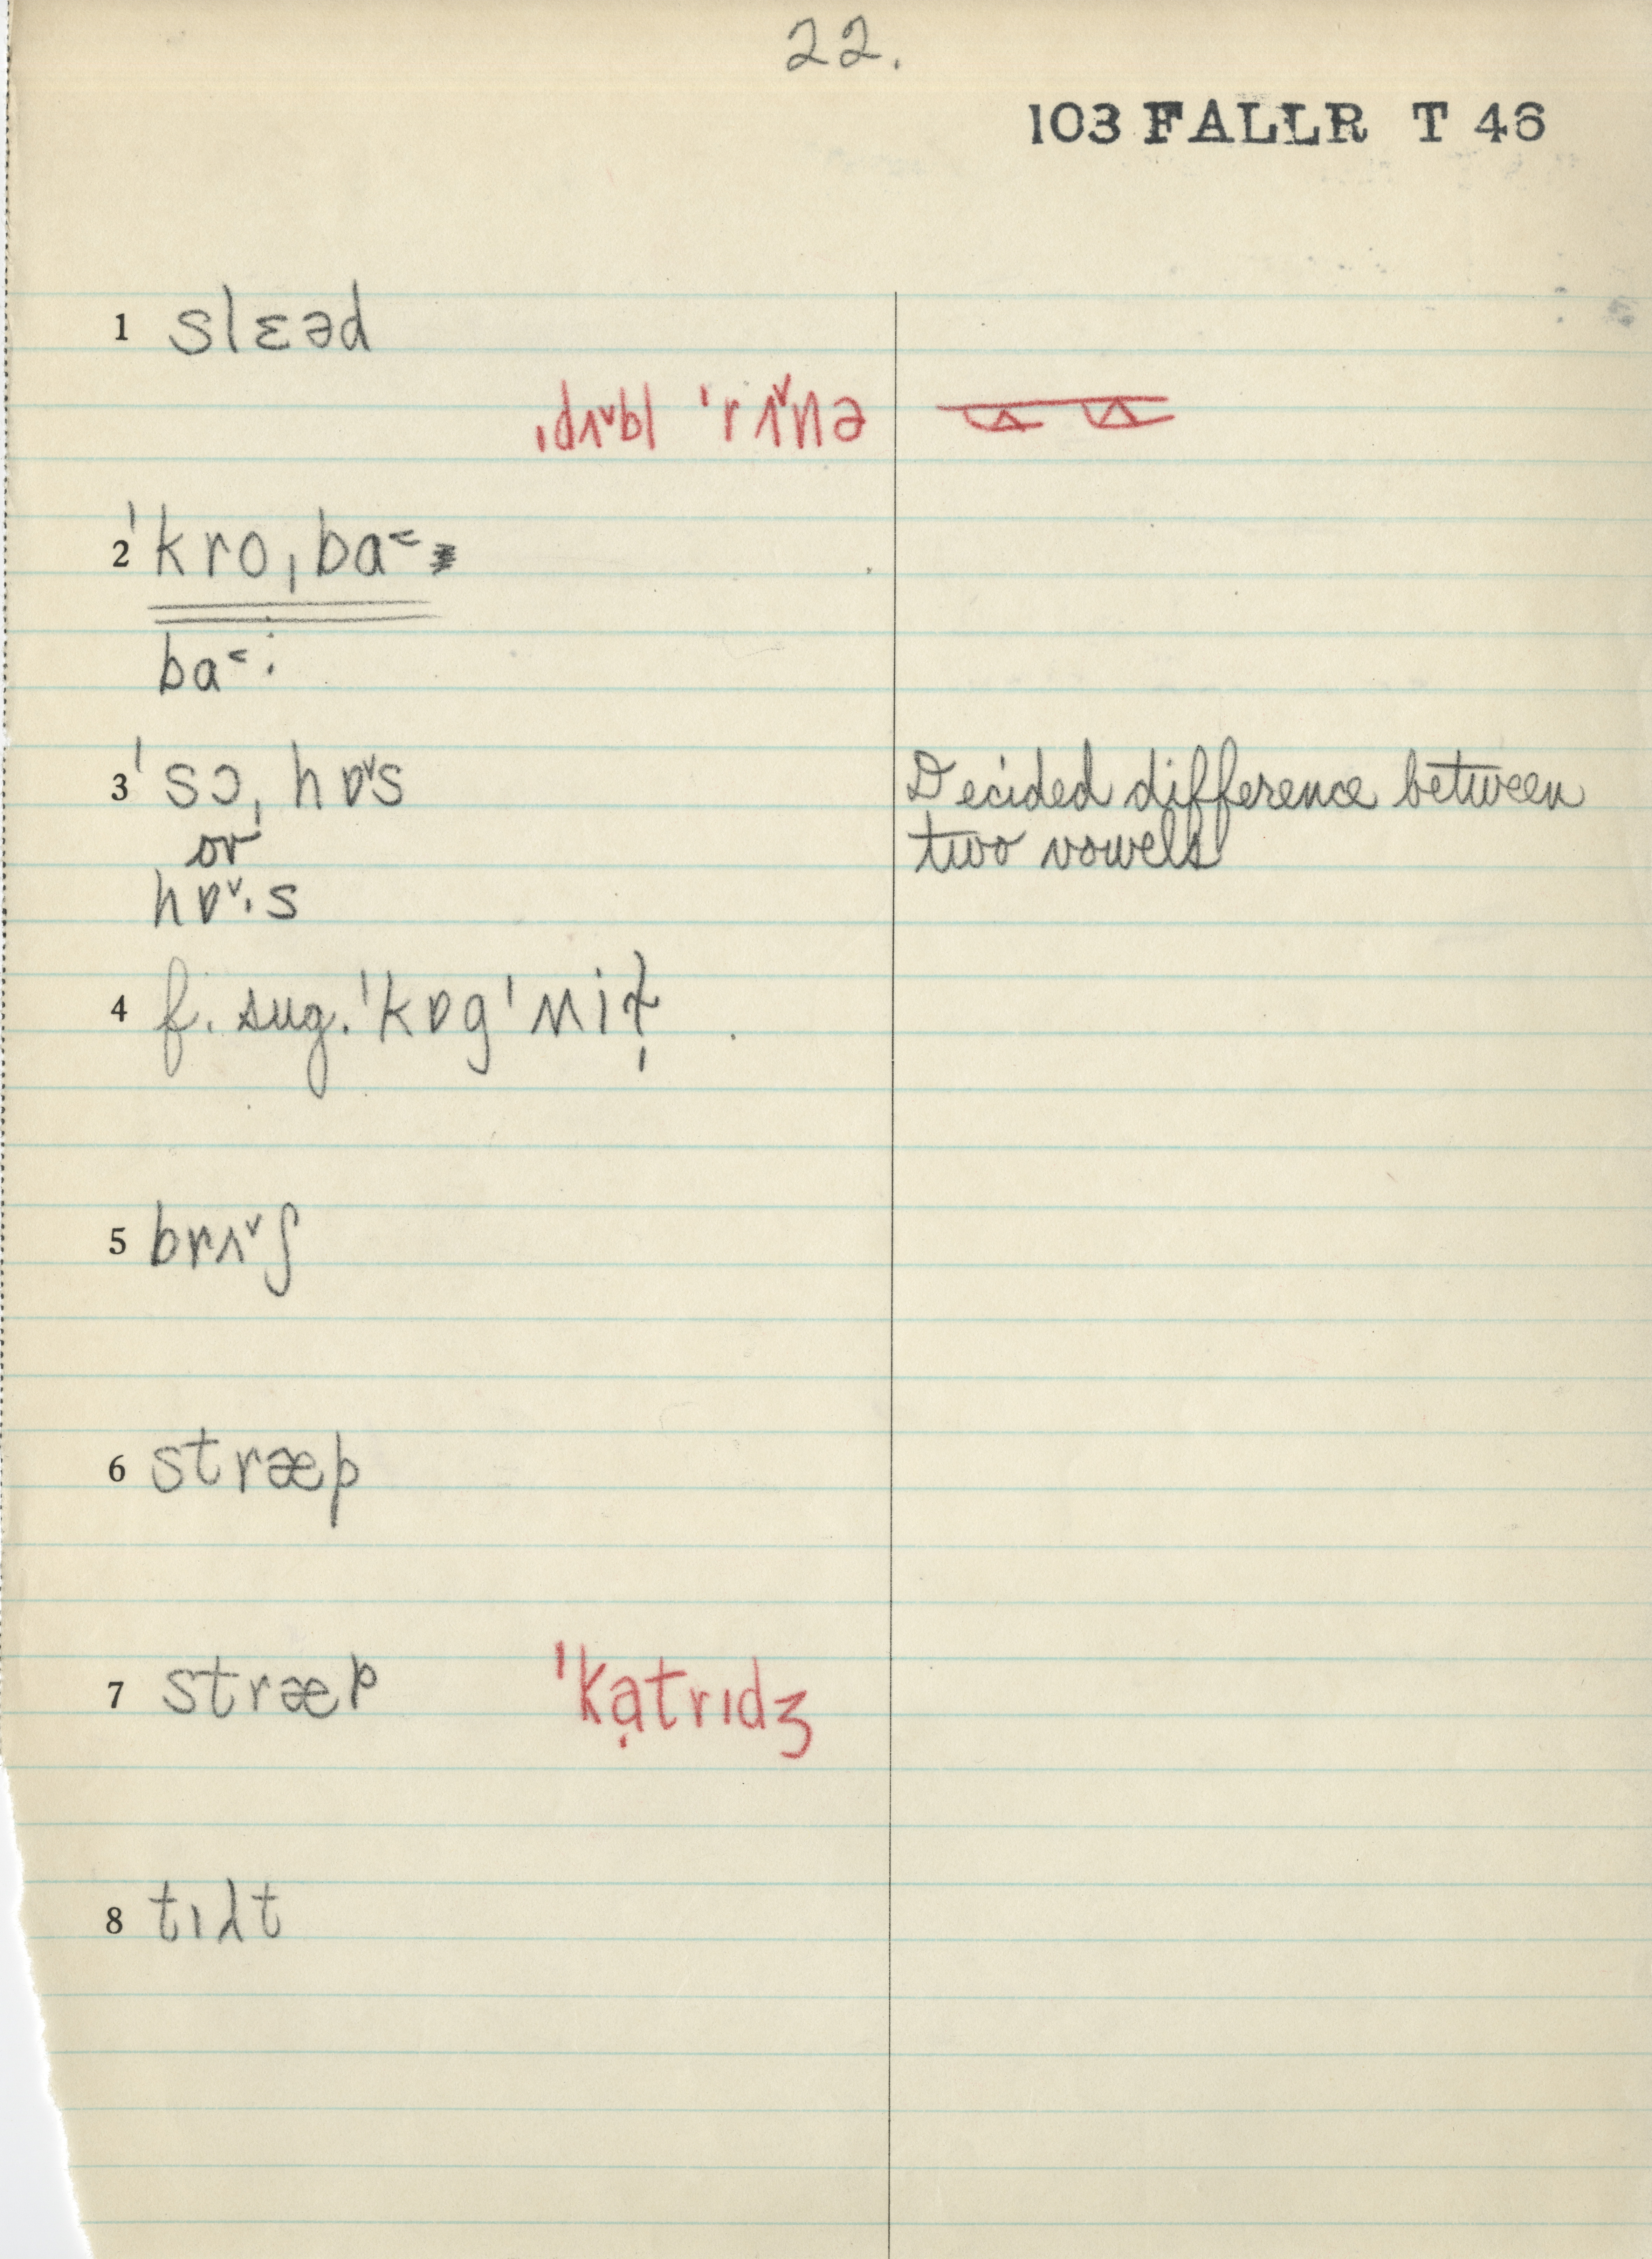 22.
103 FALLR T 46
1 slɛəd
ˌdʌ˅bl ˈrʌ˅nə
2 ˈkroˌba˂
ba˂·
3 ˈsɔˌhɒ˅s
Decided difference between
or
two vowels
hɒ˅·s
4 f. sug. ˈkɒgˈni
5 brʌ˅ʃ
6 stræp
7 stræp ˈkạtrɪdʒ
8 tɪλt